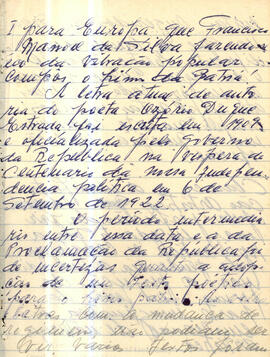 I para Europa, que Francisco
Manoel da Silva fazendo
eco da vibração popular
compôs o hino da Patria.
A letra atual de auto
ria do poeta Osório Duque
Estrada foi escrita em 1909
e oficializada pelo Governo
da República na vespera do
Centenario da nossa Indepen
dencia politica em 6 de
Setembro de 1922
O periodo intermedia
rio entre essa data e a da
Proclamação da Republica foi
de incertezas quanto a adop
ção de um texto poetico
para o
letras com a mudança de
regimen, não podiam ser
varios textos foram